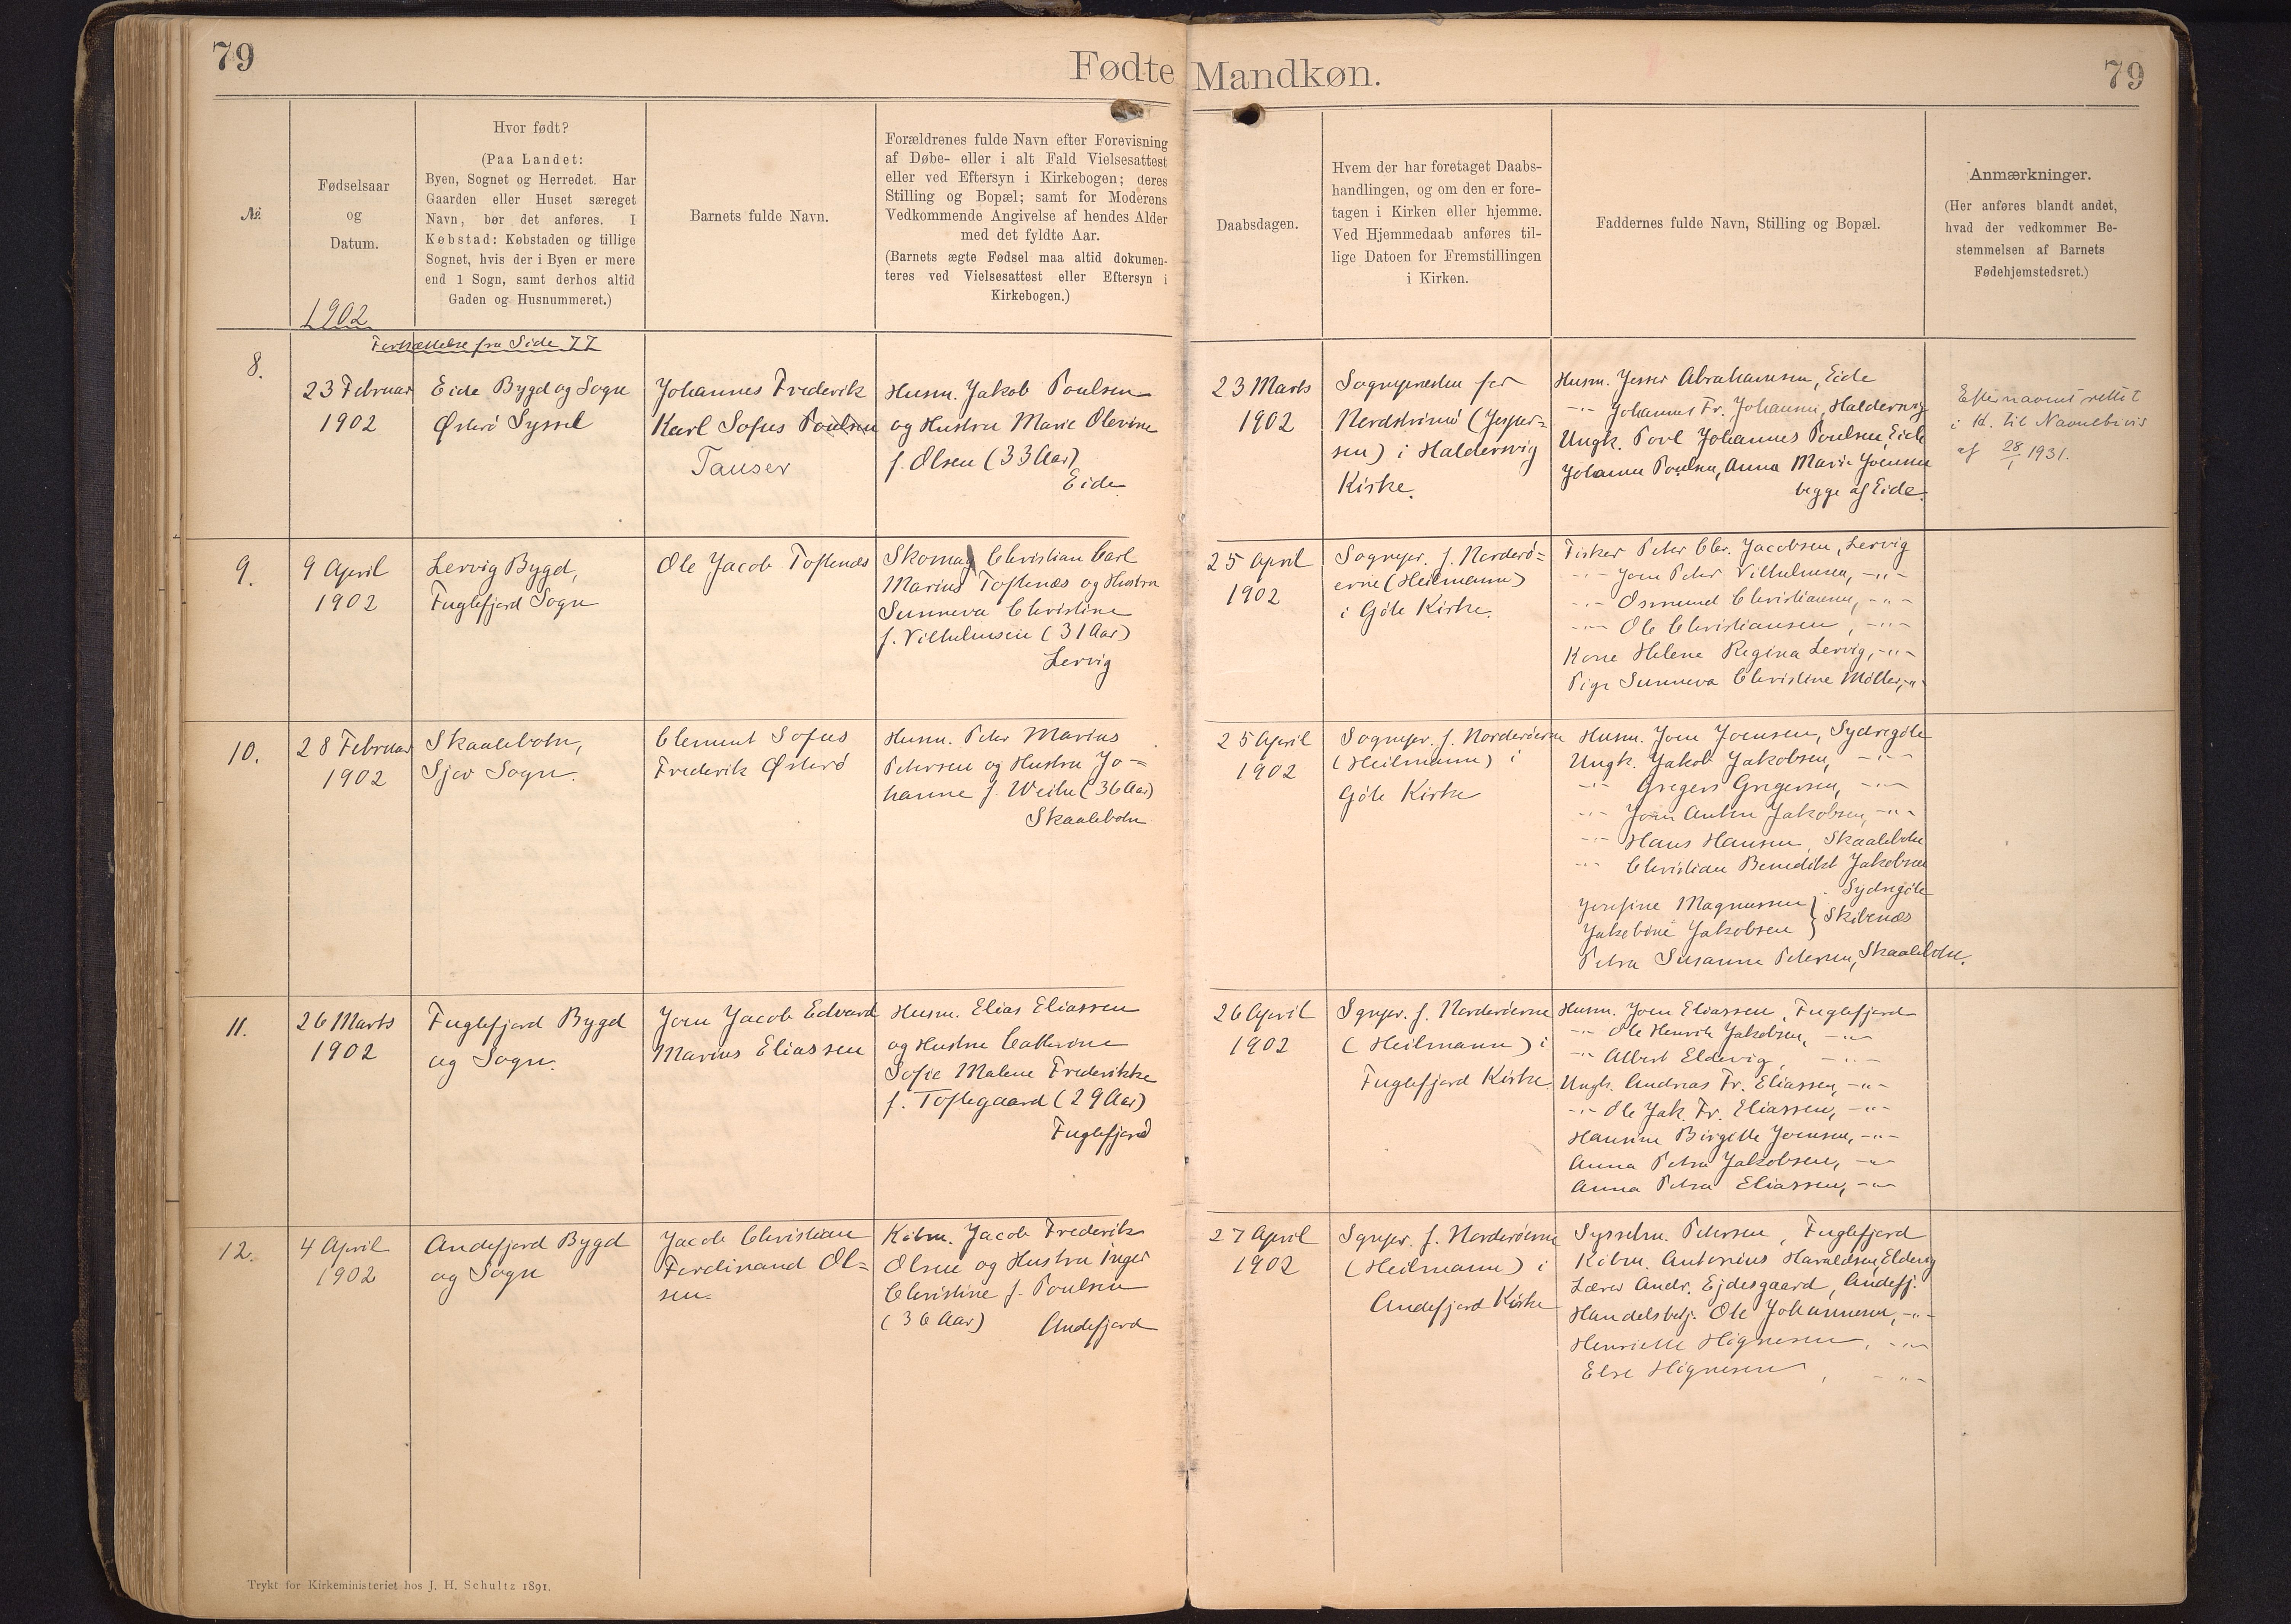 79
Fødte Mandkøn.
79
№
Fødselsaar
og
Datum.
1902
Hvor født?
(Paa Landet:
Byen, Sognet og Herredet. Har
Gaarden eller Huset særeget
Navn, bør det anføres. I
Købstad: Købstaden og tillige
Sognet, hvis der i Byen er mere
end 1 Sogn, samt derhos altid
Gaden og Husnummeret.)
Barnets fulde Navn.
Forældrenes fulde Navn efter Forevisning
af Døbe- eller i alt Fald Vielsesattest
eller ved Eftersyn i Kirkebogen; deres
Stilling og Bopæl; samt for Moderens
Vedkommende Angivelse af hendes Alder
med det fyldte Aar.
(Barnets ægte Fødsel maa altid dokumen-
teres ved Vielsesattest eller Eftersyn i
Kirkebogen.)
Daabsdagen.
Hvem der har foretaget Daabs-
handlingen, og om den er fore-
tagen i Kirken eller hjemme.
Ved Hjemmedaab anføres til-
lige Datoen for Fremstillingen
i Kirken.
Faddernes fulde Navn, Stilling og Bopæl.
Anmærkninger.
(Her anføres blandt andet,
hvad der vedkommer Be-
stemmelsen af Barnets
Fødehjemstedsret.)
Fortsættelse fra Side 77
8.
23 Februar
1902
Eide Bygd og Sogn
Østerø Syssel
Johannes Frederik
Karl Sofus Poulsen
Tauser
Husm. Jakob Poulsen
og Hustru Marie Olevine
f. Olsen (33 Aar)
Eide
23 Marts
1902
Sognepresten for
Nordstrømø (Jesper=
sen) i Haldersvig
Kirke.
Husm. Jesser Abrahamsen, Eide
-"- Johannes Fr. Johansen, Haldersvig
Ungk. Povl Johannes Poulsen, Eide
Johanne Poulsen, Anna Marie Joensen
begge af Eide.
Efternavnet rettet
i H. til Navnebevis
af 28/1 1931.
9.
9 April
1902
Lervig Bygd,
Fuglefjord Sogn
Ole Jacob Toftenæs
Skomag Christian Carl
Marius Toftenæs og Hustru
Sunneva Christine
f. Vilhelmsen (31 Aar)
Lervig
25 April
1902
Sognepr. f. Norderø=
erne (Heilmann)
i Gøte Kirke.
Fisker Peter Chr. Jacobsen, Lervig
-"- Joen Peter Vilhelmsen, -"-
-"- Osmund Christiansen, -"-
-"- Ole Christiansen, -"-
Kone Helene Regina Lervig, -"-
Pige Sunneva Christine Møller, -"-
10.
28 Februar
1902
Skaalebotn,
Sjov Sogn.
Clement Sofus
Frederik Østerø
Husm. Peter Marius
Petersen og Hustru Jo=
hanne f. Weihe (36 Aar)
Skaalebotn
25 April
1902
Sognepr. f. Norderøerne
(Heilmann) i
Gøte Kirke
Husm. Joen Joensen, Sydregøte
Ungk. Jakob Jakobsen, -"-
-"- Gregers Gregersen, -"-
-"- Joen Anton Jakobsen, -"-
-"- Hans Hansen, Skaalebotn
-"- Christian Benedikt Jakobsen
Sydregøte
Josefine Magnussen }
Jakobine Jakobsen } Skibenæs
Petra Susanne Petersen, Skaalebotn.
11.
26 Marts
1902
Fuglefjord Bygd
og Sogn.
Joen Jacob Edvard
Marius Eliassen
Husm. Elias Eliassen
og Hustru Cathrine
Sofie Malene Frederikke
f. Toftegaard (29 Aar)
Fuglefjord
26 April
1902
Sgnepr. f. Norderøerne
(Heilmann) i
Fuglefjord Kirke.
Husm. Joen Eliassen, Fuglefjord
-"- Ole Henrik Jakobsen, -"-
-"- Albert Eldevig, -"-
Ungk. Andreas Fr. Eliassen, -"-
-"- Ole Jak. Fr. Eliassen, -"-
Hansine Birgitte Joensen, -"-
Anna Petra Jakobsen, -"-
Anna Petra Eliassen, -"-
12.
4 April
1902
Andefjord Bygd
og Sogn
Jacob Christian
Ferdinand Ol=
sen.
Købm. Jacob Frederik
Olsen og Hustru Inger
Christine f. Poulsen
(36 Aar) Andefjord
27 April
1902
Sgnepr. f. Norderøerne
(Heilmann) i
Andefjord Kirke
Sysselm. Petersen, Fuglefjord
Købm. Antonius Haraldsen, Eldevig
Lærer Andr. Ejdesgaard, Andefj.
Handelsbetj. Ole Johannesen, -"-
Henriette Høgnesen, -"-
Else Høgnesen, -"-
Trykt for Kirkeministeriet hos J. H. Schultz 1891.